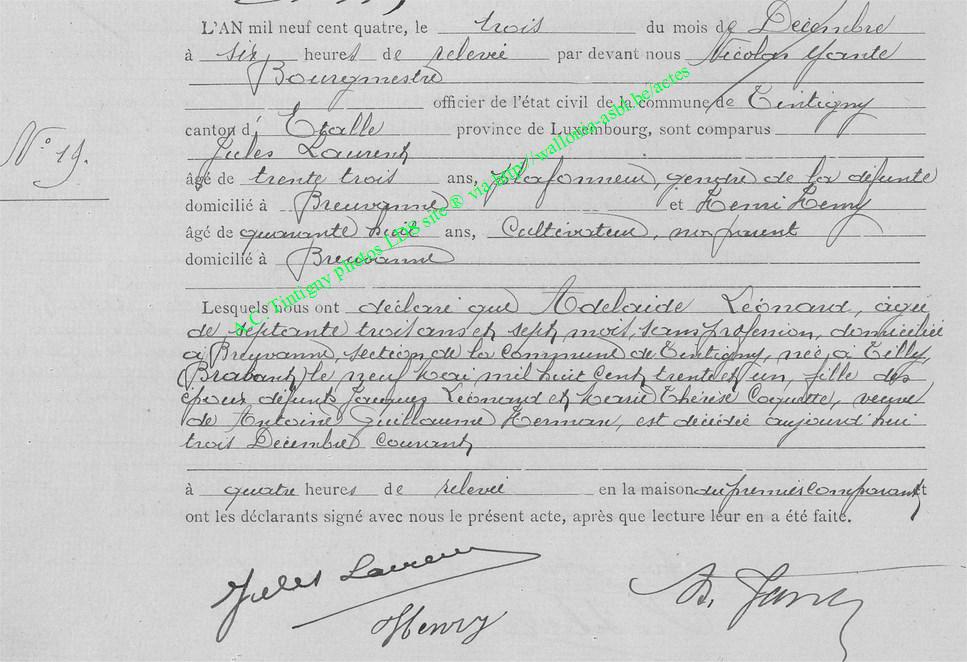 L'AN mil neuf cent quatre, le trois du mois de Décembre
à six heures de relevée par devant nous Nicolas Yante
Bourgmestre
officier de l'état civil de la commune de Tintigny
canton d' Etalle province de Luxembourg, sont comparus
Jules Laurent
N° 19.
âgé de trente trois ans, plafonneur, gendre de la défunte
domicilié à Breuvanne et Henri Remy
âgé de quarante huit ans, Cultivateur, non parent
domicilié à Breuvanne
Lesquels nous ont déclaré que Adelaïde Léonard, agée
de septante trois ans et sept mois, sans profession, domiciliée
à Breuvanne, section de la commune de Tintigny, née à Tilly
(Brabant) le neuf mai mil huit cent trente et un, fille des
époux défunts Jacques Léonard et Marie Thérèse Coquette, veuve
de Antoine Guillaume Herman, est décédée aujourd'hui
trois Décembre courant
à quatre heures de relevée en la maison du premier comparant
ont les déclarants signé avec nous le présent acte, après que lecture leur en a été faite.
Jules Laurent
Henry
N. Yante
A.C. Tintigny photos LDG site ® via http://wallonia-asbl.be/actes